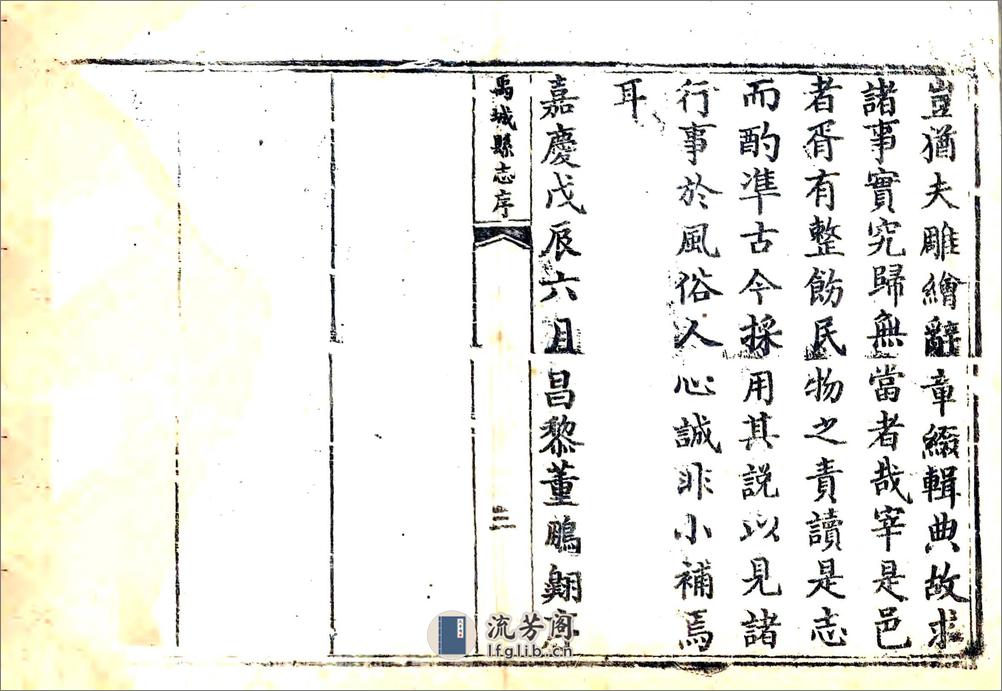 豈猶夫雕繪辭章綴輯典故求
諸事實究歸無當者哉宰是邑
者胥有整飭民物之責讀是志
而酌準古今採用其說以見諸
行事於風俗人心誠非小補焉
耳
嘉慶戊辰六月昌黎董鵬翱序
禹城縣志序
三
流芳阁
lfglib.cn